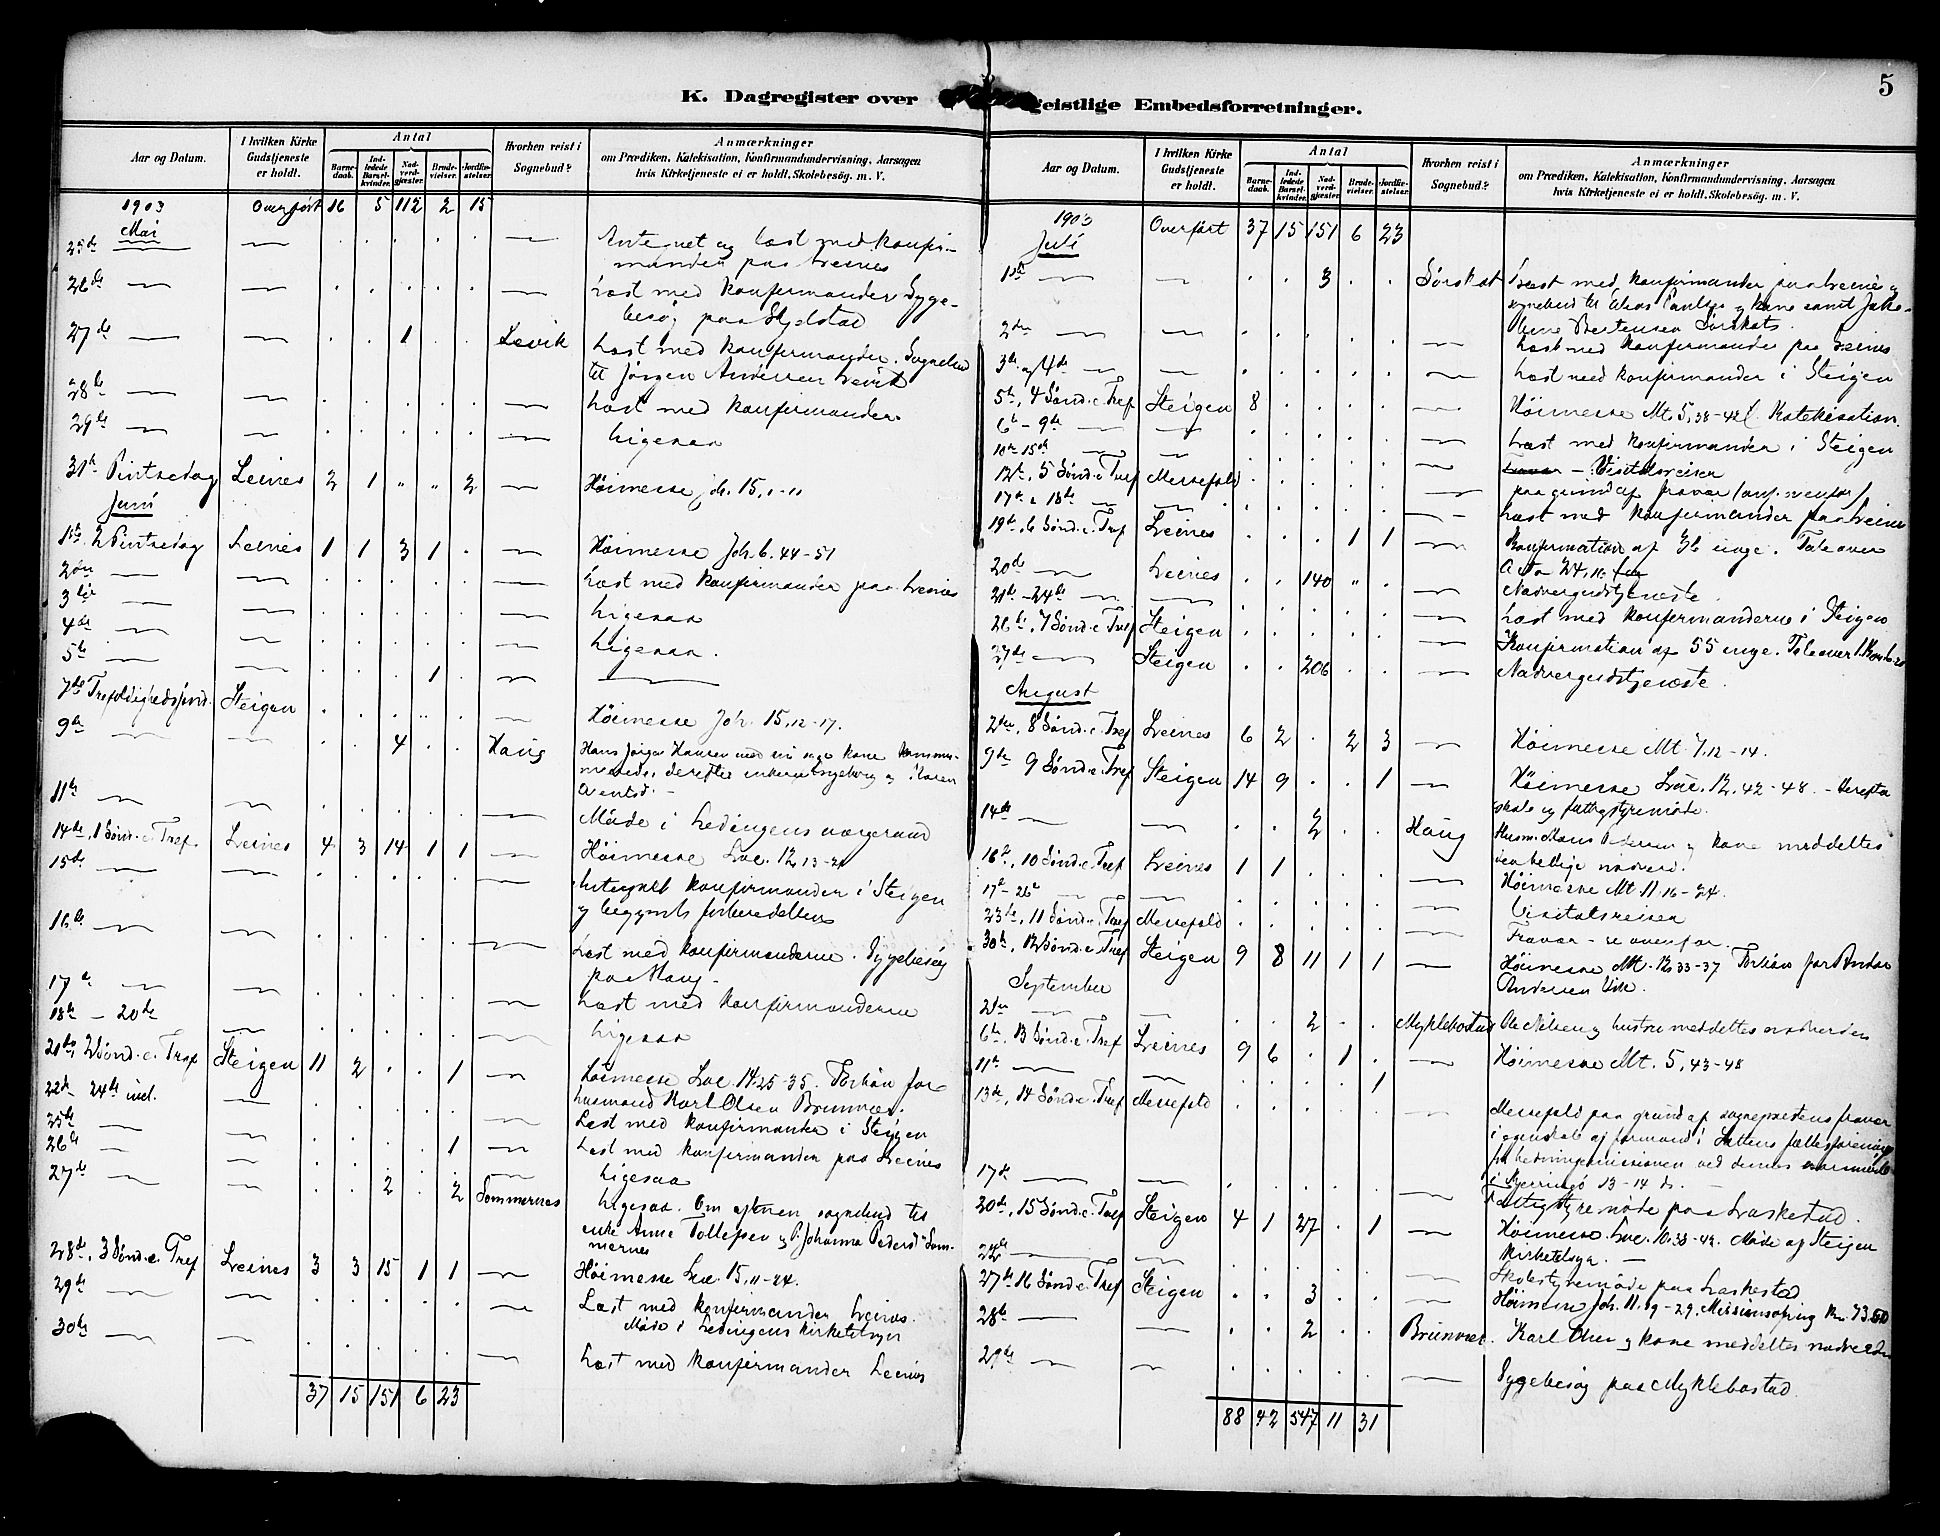 5
K. Dagregister over geistlige Embedsforretninger.
Aar og Datum. I hvilken Kirke Gudstjeneste er holdt. Antal Barnedaab. Indledede Barselkvinder. Nadverdgjæster. Brudevielser. Jordfæstelser. Hvorhen reist i Sognebud? Anmærkninger om Prædiken, Katekisation, Konfirmandundervisning, Aarsagen hvis Kirketjeneste ei er holdt, Skolebesög. m. V.
1903 Overført 16 5 112 2 15
Mai
25de Antegnet og læst med konfir-
mander paa Leines
26de Læst med konfirmander Syge-
besøg paa
27de 1 Lovik Læst med konfirmander. Sognebud
til Jørgen Andersen
28de Læst med konfirmander
29de Ligesaa
31te Pintsedag Leines 2 1 " " 2 Höimesse Joh. 15, 1-11
Juni
1ste 2 Pintsedag Leines 1 1 3 1 . Höimesse Joh. 6. 44-51
2den Læst med konfirmander paa Leines
3die Ligesaa
4de Ligesaa.
5te 1
7de Trefoldighedssönd. Steigen Höimesse Joh. 15, 12-17.
9de 4 Haug Hans Jørgen Hansen med sin syge kone
11te Möde i Ledingens værgeraad
14de, 1 Sönd. e. Tref. Leines 4 3 14 1 1 Höimesse Luc. 12, 13-21
15de Antegnet konfirmander i Steigen
og begyndt forberedelsen
16de Læst med konfirmanderne. Sygebesög
paa Haug.
17de Læst med konfirmanderne
18de - 20de Ligesaa
21de, 2 Sönd. e. Tref Steigen 11 2 . . 1 Höimesse Luc. 14. 25-35. Forbön for
husmand Karl Olsen Brunvær.
22de 24de incl. Læst med konfirmander i Steigen
25de 1 Læst med konfirmander paa Leines
26de Ligesaa
27de 2 . 2 Sommernes Ligesaa. Om aftenen sognebud til
enke Anne Tollefsen og P. Johanna Pedersd. Som-
mernes
28de, 3 Sönd. e. Tref Leines 3 3 15 1 1 Höimesse Luc. 15, 11-24.
29de Læst med konfirmander Leines.
Möde i Ledingens kirketilsyn
30de Læst med konfirmander Leines
37 15 151 6 23
Aar og Datum. I hvilken Kirke Gudstjeneste er holdt. Antal Barnedaab. Indledede Barselkvinder. Nadverdgjæster. Brudevielser. Jordfæstelser. Hvorhen reist i Sognebud? Anmærkninger om Prædiken, Katekisation, Konfirmandundervisning, Aarsagen hvis Kirketjeneste ei er holdt, Skolebesög. m. V.
1903 Overført 37 15 151 6 23
Juli
1ste 3 Sørskot Læst med konfirmander paa Leines og
sognebud til og kone samt Jako-
bine Sørskot.
2den Læst med konfirmander paa Leines
3de og 4de Læst med konfirmander i Steigen
5te, 4 Sönd. e. Tref Steigen 8 Höimesse Mt. 5, 38-42. Katekisation.
6te - 9de Læst med konfirmander i Steigen
10de 15de Visitatsreiser
12te, 5 Sönd. e. Tref Messefold paa grund af fravær
17de & 18de Læst med konfirmander paa Leines
19de, 6 Sönd. e. Tref Leines 1 1 Konfirmation af 36 unge. Tale over
Acta 24, 16.
20de Leines . . 140 " . Nadvergudstjeneste.
21de - 24de Læst med konfirmanderne i Steigen
26de, 7 Sönd. e. Tref Steigen Konfirmation af 55 unge. Tale over
27de Steigen . . 206 Nadvergudstjeneste.
August
2den, 8 Sönd. e. Tref Leines 6 2 . 2 3 Höimesse Mt. 7, 12-14.
9de 9 Sönd. e. Tref Steigen 14 9 . . 1 Höimesse Luc. 12, 42-48. - Derefter
skole og fattigstyremöde.
14de 2 Haug Husm. Hans Pedersen og kone meddeltes
den hellige nadverd.
16de, 10 Sönd. e. Tref Leines 1 1 Höimesse Mt. 11. 16-24.
17de 26de Visitatsreiser
23de, 11 Sönd. e. Tref Messefold Fravær - se ovenfor.
30te, 12 Sönd. e. Tref Steigen 9 8 11 1 1 Höimesse Mt. 12, 33-37 Forbön for Peder
Andersen Vik.
September
2den 2 Myklebostad Ole Nilsen og hustru meddeltes nadverden
6te, 13 Sönd. e. Tref Leines 9 6 . 1 . Höimesse Mt. 5, 43-48
11te 1
13de, 14 Sönd. e. Tref Messefold Messefold paa grund af sogneprestens fravær
i egenskab af formand i Saltens fællesforening
for hedningemissionen ved dennes aarsmöde
i Kjerringö 13-14 ds.
17de Fattigstyremöde paa Laskestad.
20de, 15 Sönd. e. Tref Steigen 4 1 27 . 1 Höimesse. Luc. 10, 38-42. Möde af Steigen
kirketilsyn.
22de Skolestyremöde paa Laskestad
27de 16 Sönd. e. Tref Steigen . . 3 Höimesse Joh. 11. 19-29. Missionsofring Kr. 73.50
28de 2 Brunvær. Karl Olsen og kone meddeltes nadverden
29de Sygebesög paa Myklebostad.
88 42 547 11 31